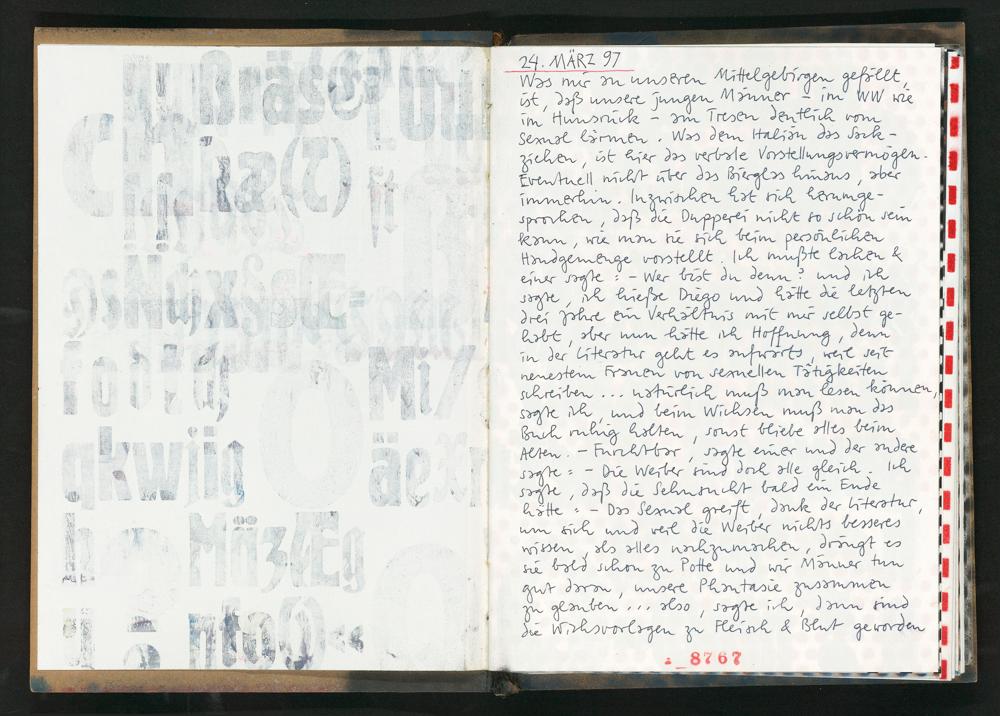 ßräse
Mi
qkwijg
äex
h
MäzÆg
24. MÄRZ 97
Was mir an unseren Mittelgebirgen gefällt,
ist, daß unsere jungen Männer – im WW wie
im Hunsrück – am Tresen deutlich vom
Sexual lärmen. Was dem Italiän das Sack-
ziehen, ist hier das verbale Vorstellungsvermögen.
Eventuell nicht über das Bierglas hinaus, aber
immerhin. Inzwischen hat sich herumge-
sprochen, daß die Dupperei nicht so schön sein
kann, wie man sie sich beim persönlichen
Handgemenge vorstellt. Ich mußte lachen &
einer sagte: – Wer bist du denn? und ich
sagte, ich hieße Diego und hätte die letzten
drei Jahre ein Verhältnis mit mir selbst ge-
habt, aber nun hätte ich Hoffnung, denn
in der Literatur geht es aufwärts, weil seit
neuestem Frauen von sexuellen Tätigkeiten
schreiben ... natürlich muß man lesen können,
sagte ich, und beim Wichsen muß man das
Buch ruhig halten, sonst bliebe alles beim
Alten. – Furchtbar, sagte einer und der andere
sagte: – Die Weiber sind doch alle gleich. Ich
sagte, daß die Sehnsucht bald ein Ende
hätte: – Das Sexual greift, dank der Literatur,
um sich und weil die Weiber nichts besseres
wissen, als alles nachzumachen, drängt es
sie bald schon zu Potte und wir Männer tun
gut daran, unsere Phantasie zusammen
zu glauben ... also, sagte ich, dann sind
die Wichsvorlagen zu Fleisch & Blut geworden
8767